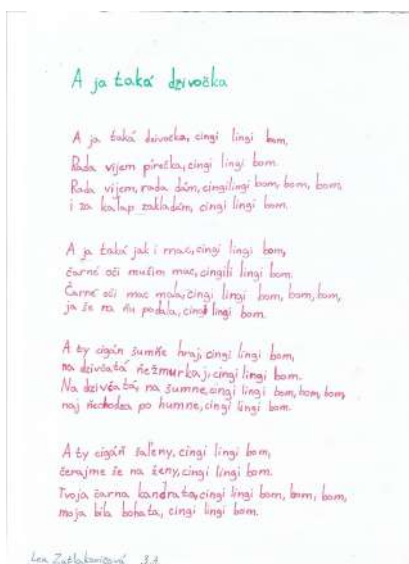 A ja taká dzivočka
A ja taká dzivočka, cingi lingi bom,
Rada vijem pirečka, cingi lingi bom.
Rada vijem, rada dám, cingilingi bom, bom, bom,
i za kalap zakladám, cingi lingi bom.
A ja taká jak i mac, cingi lingi bom,
čarné oči mušim mac, cingili lingi bom.
Čarné oči mac mala, cingi lingi bom, bom, bom,
ja še na ňu podala, cingi lingi bom.
A ty cigán šumňe hraj, cingi lingi bom,
na dzivčatá ňežmurkaj, cingi lingi bom.
Na dzivčatá, na šumne, cingi lingi bom, bom, bom,
naj ňechodza po humne, cingi lingi bom.
A ty cigáň šaľeny, cingi lingi bom,
čerajme še na ženy, cingi lingi bom.
Tvoja čarna kandrata, cingi lingi bom, bom, bom,
moja bila bohata, cingi lingi bom.
Lea 3.A